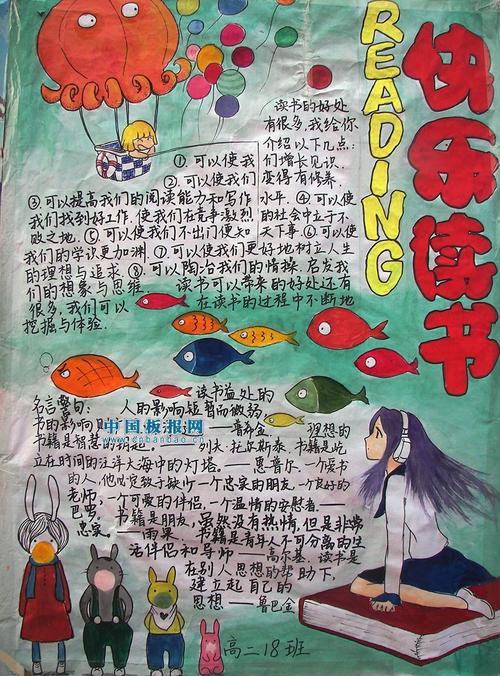 快乐读书
READING
读书的好处
有很多,我给你
介绍以下几点:
①.可以使我们增长见识.
②.可以使我们变得有修养.
③可以提高我们的阅读能力和写作水平.④可以使
我们找到好工作,使我们在竞争激烈的社会中立于不
败之地.⑤可以使我们不出门便知天下事.⑥可以使
我们的学识更加渊.⑦可以使我们更好地树立人生
的理想与追求.⑧可以陶冶我们的情操,启发我
们的想象与思维.读书可以带来的好处还有
很多,我们可以在读书的过程中不断地
挖掘与体验.
读书益处的
名言警句:人的影响短暂而微弱,
书的影响则
——普希金.理想的
书籍是智慧的钥匙.——列夫·托尔斯泰.书籍是屹
立在时间的汪洋大海中的灯塔.——惠普尔.一个爱书
的人,他必定致于缺少一个忠实的朋友,一个良好的
老师,一个可爱的伴侣,一个温情的安慰者——
巴罗.书籍是朋友,虽然没有热情,但是非常
忠实.——雨果.书籍是青年人不可分离的生
活伴侣和导师——高尔基.读书是
在别人思想的帮助下,
建立起自己的
思想——鲁巴金
中国板报网
www.cnbanbao.cn
高二18班